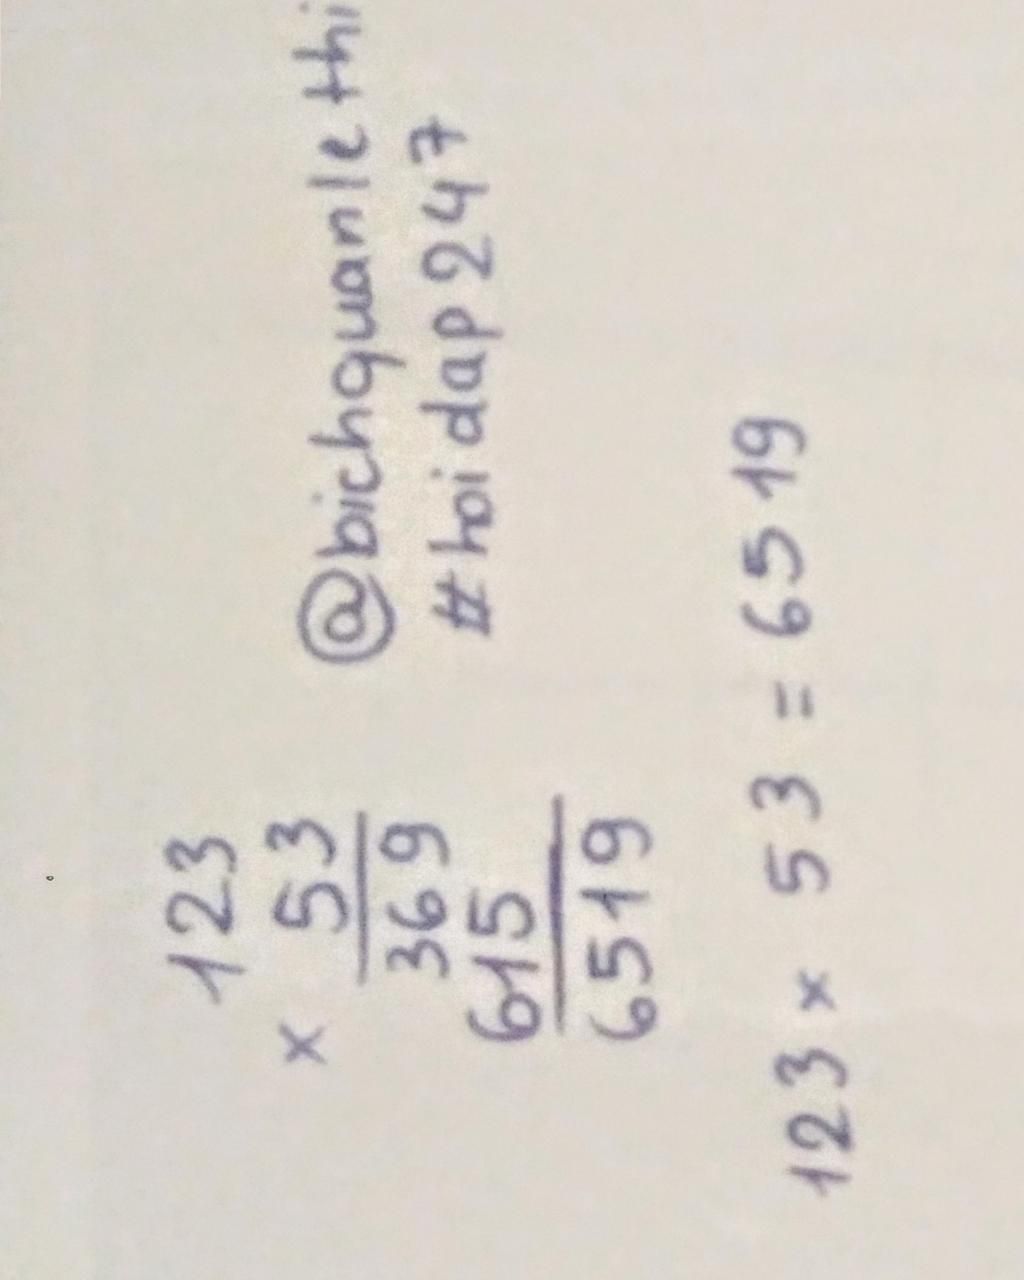 123
x 53
369
615
6519
@bichquanle thi
#hoi dap 247
123 x 53 = 6519